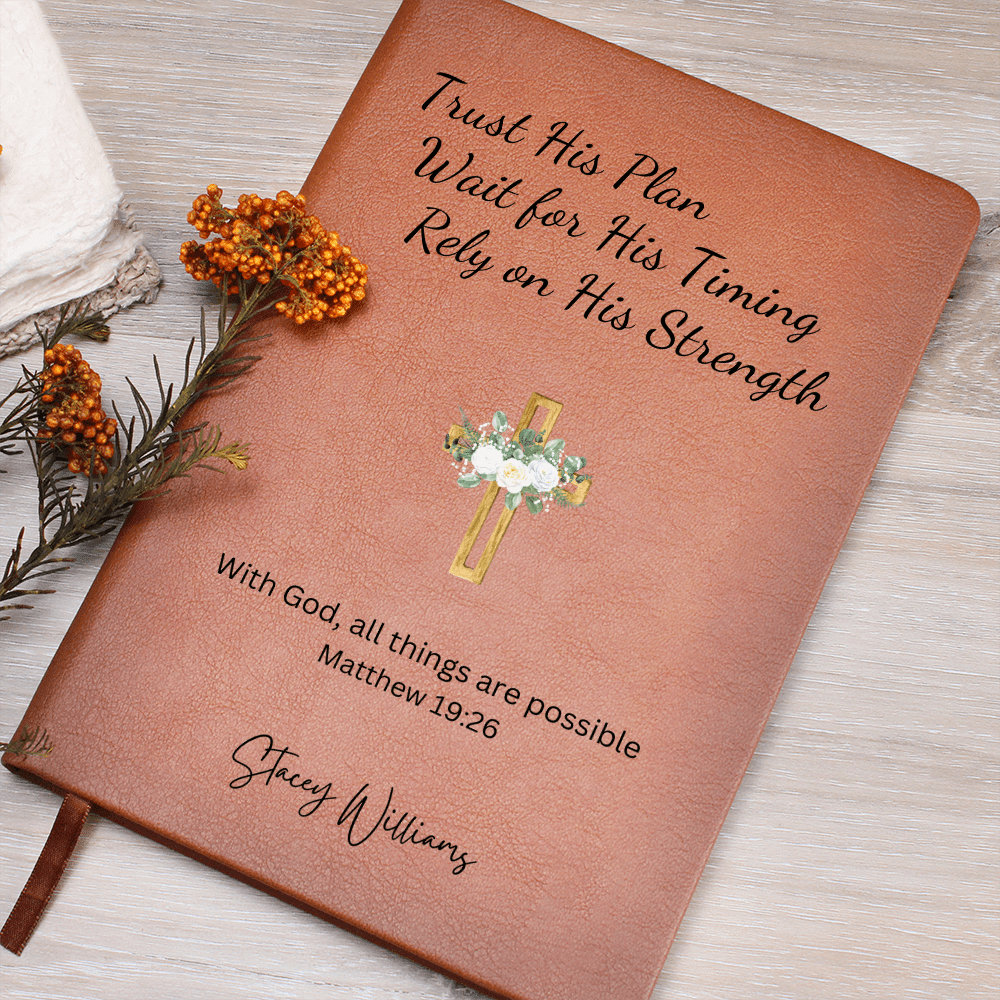 Trust His Plan
Wait for His Timing
Rely on His Strength
With God, all things are possible
Matthew 19:26
Stacey Williams